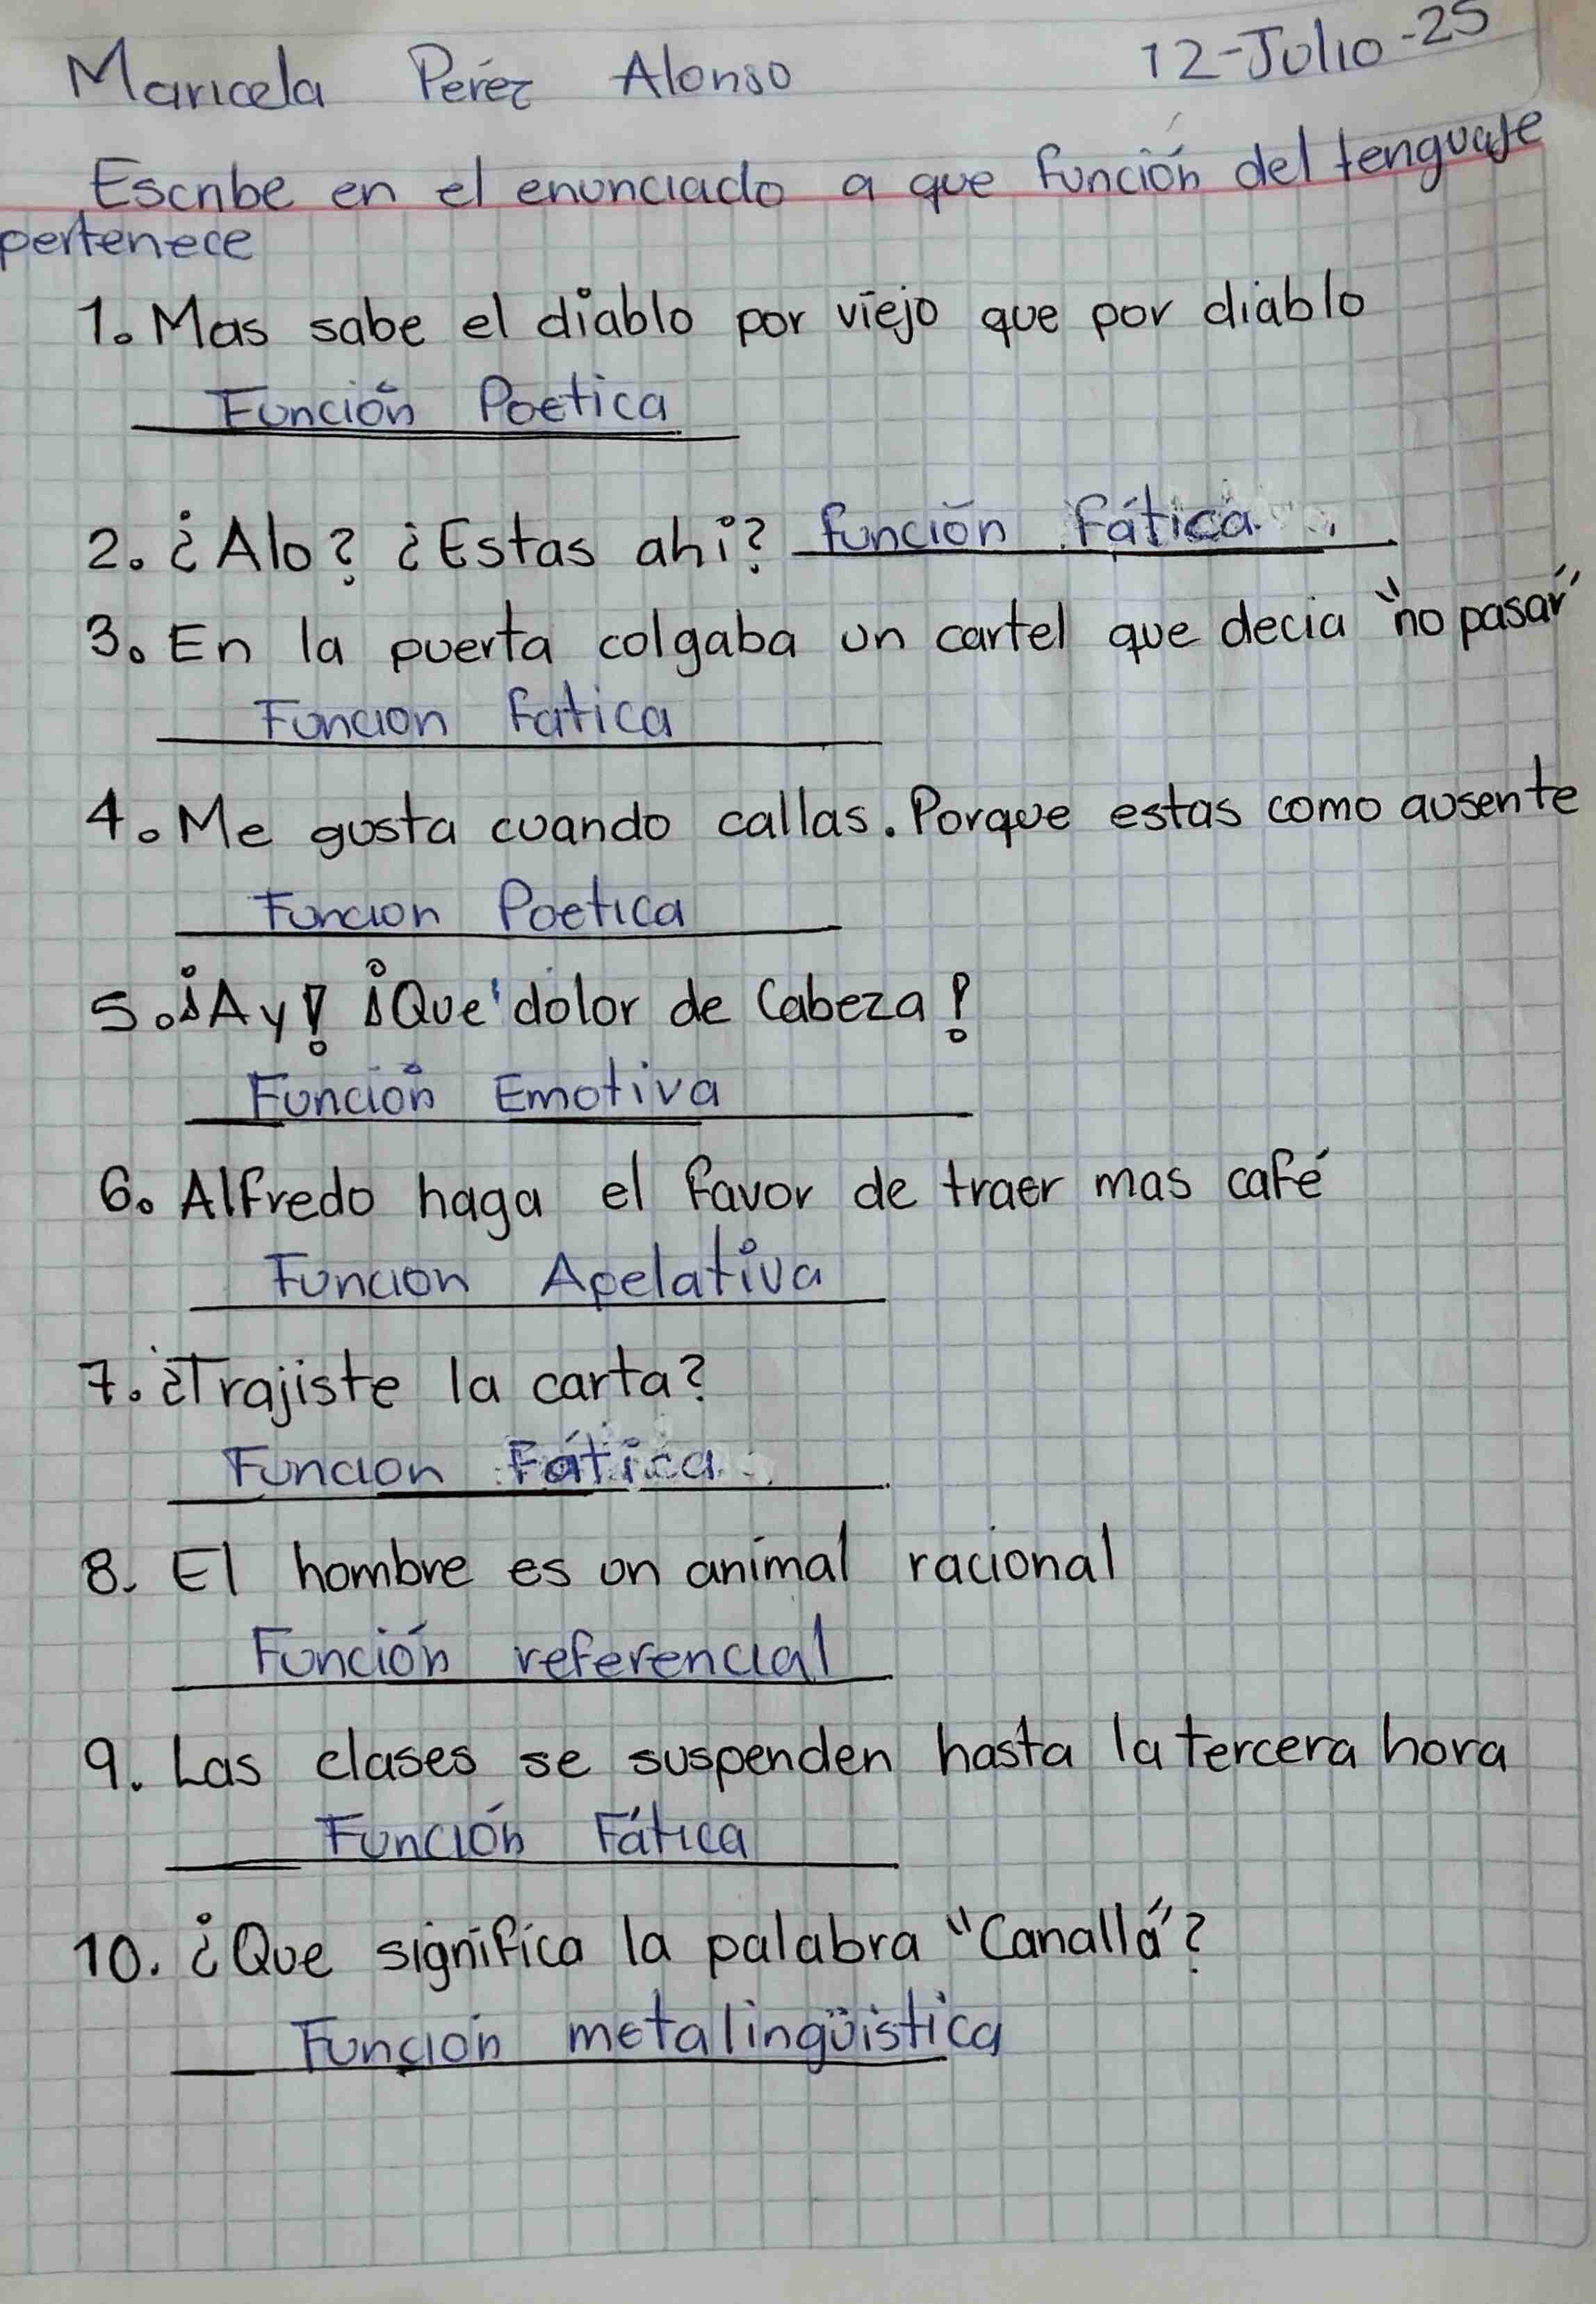 Maricela Peréz Alonso
12-Julio-25
Escribe en el enunciado a que función del lenguaje
pertenece
1. Mas sabe el diablo por viejo que por diablo
Función Poetica
2. ¿Alo? ¿Estas ahi? función Fática
3. En la puerta colgaba un cartel que decia "no pasar"
Funcion Fatica
4. Me gusta cuando callas. Porque estas como ausente
Funcion Poetica
5. ¡Ay! ¡Que' dolor de Cabeza!
Función Emotiva
6. Alfredo haga el favor de traer mas café
Funcion Apelativa
7. ¿Trajiste la carta?
Funcion Fática
8. El hombre es un animal racional
Función referencial
9. Las clases se suspenden hasta la tercera hora
Función Fática
10. ¿Que significa la palabra "Canalla"?
Función metalingüistica